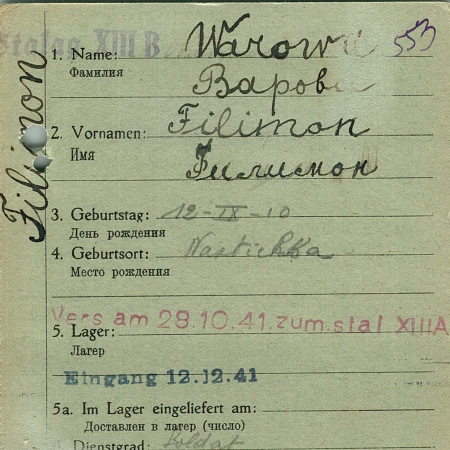 Stalag XIII B
553
1. Name: Warow
Фамилия Варов
Filimon
2. Vornamen: Filimon
Имя Филимон
3. Geburtstag: 12-IX-10
День рождения
4. Geburtsort: Nastichka
Место рождения
Vers am 28.10.41.zum.stal XIIIA
5. Lager:
Лагерь
Eingang 12.12.41
5a. Im Lager eingeliefert am:
Доставлен в лагер (число)
Dienstgrad: Soldat